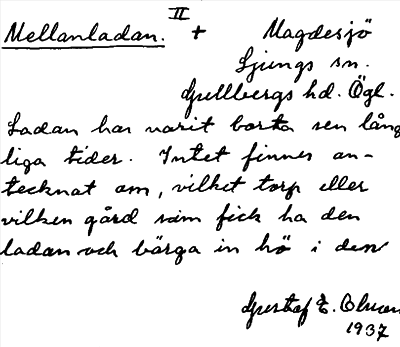 Mellanladan. II + Magdesjö
Ljungs sn.
Gullbergs hd. Ögl.
Ladan har varit borta sen lång
liga tider. Intet finnes an-
tecknat om, vilket torp eller
vilken gård som fick ha den
ladan och bärga in hö i den
Gustaf E. Olsson
1937